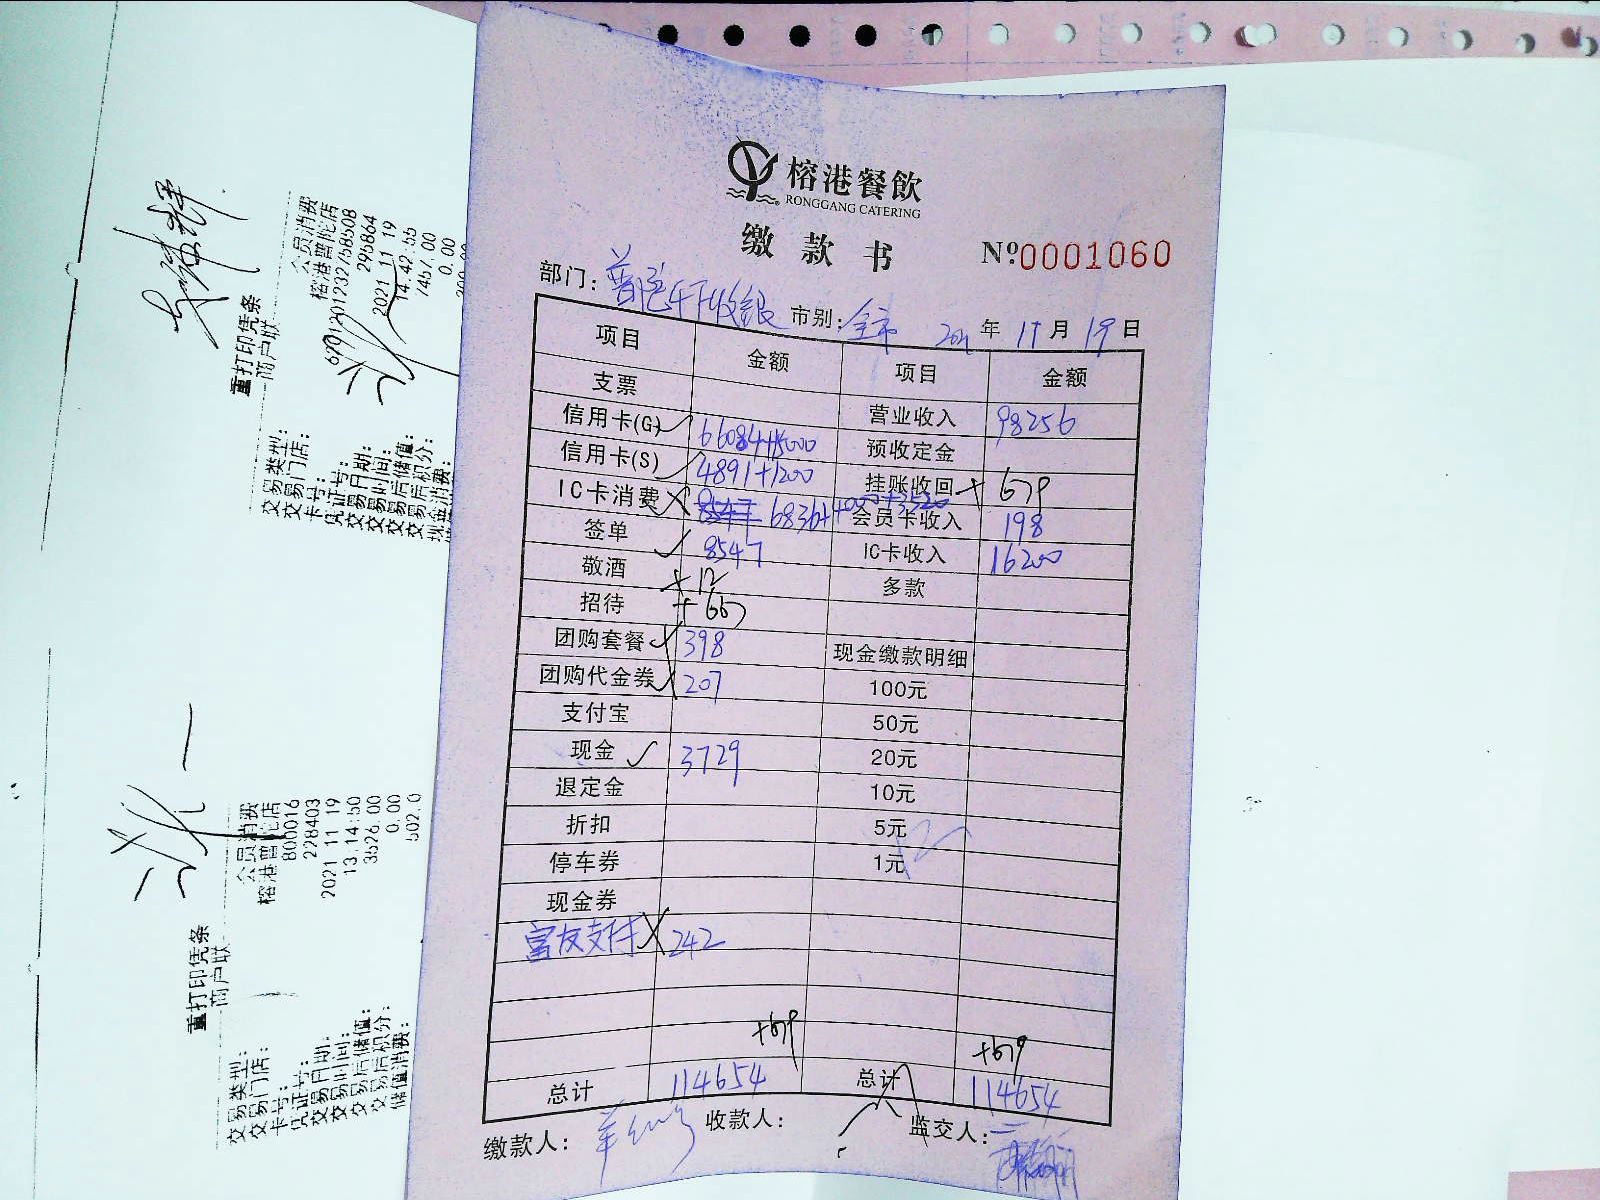 榕港餐飲
RONGGANG CATERING
缴款书
Nº0001060
部门: 普陀午市收银 市别: 全市 2021年 11月 19日
项目 金额 项目 金额
支票 营业收入 98256
信用卡(G) 66084+15000 预收定金
信用卡(S) 4891+1200 挂账收回 + 679
IC卡消费 6836+4000+3520 会员卡收入 198
签单 8547 IC卡收入 16200
敬酒 +12 多款
招待 + 667
团购套餐 398 现金缴款明细
团购代金券 207 100元
支付宝 50元
现金 3729 20元
退定金 10元
折扣 5元
停车券 1元
现金券
富友支付 242
+679 +679
总计 114654 总计 114654
缴款人: 收款人: 监交人:
重打印凭条
商户联
交易类型: 会员消费
交易门店: 榕港普陀店
卡号: 6791201232758508
凭证号: 295864
交易日期: 2021 11 19
交易时间: 14.42.55
交易后储值: 7457.00
交易后积分: 0.00
现金消费:
重打印凭条
商户联
交易类型: 会员消费
交易门店: 榕港普陀店
卡号: 800016
凭证号: 228403
交易日期: 2021 11 19
交易时间: 13:14:50
交易后储值: 3526.00
交易后积分: 0.00
储值消费: 502.0